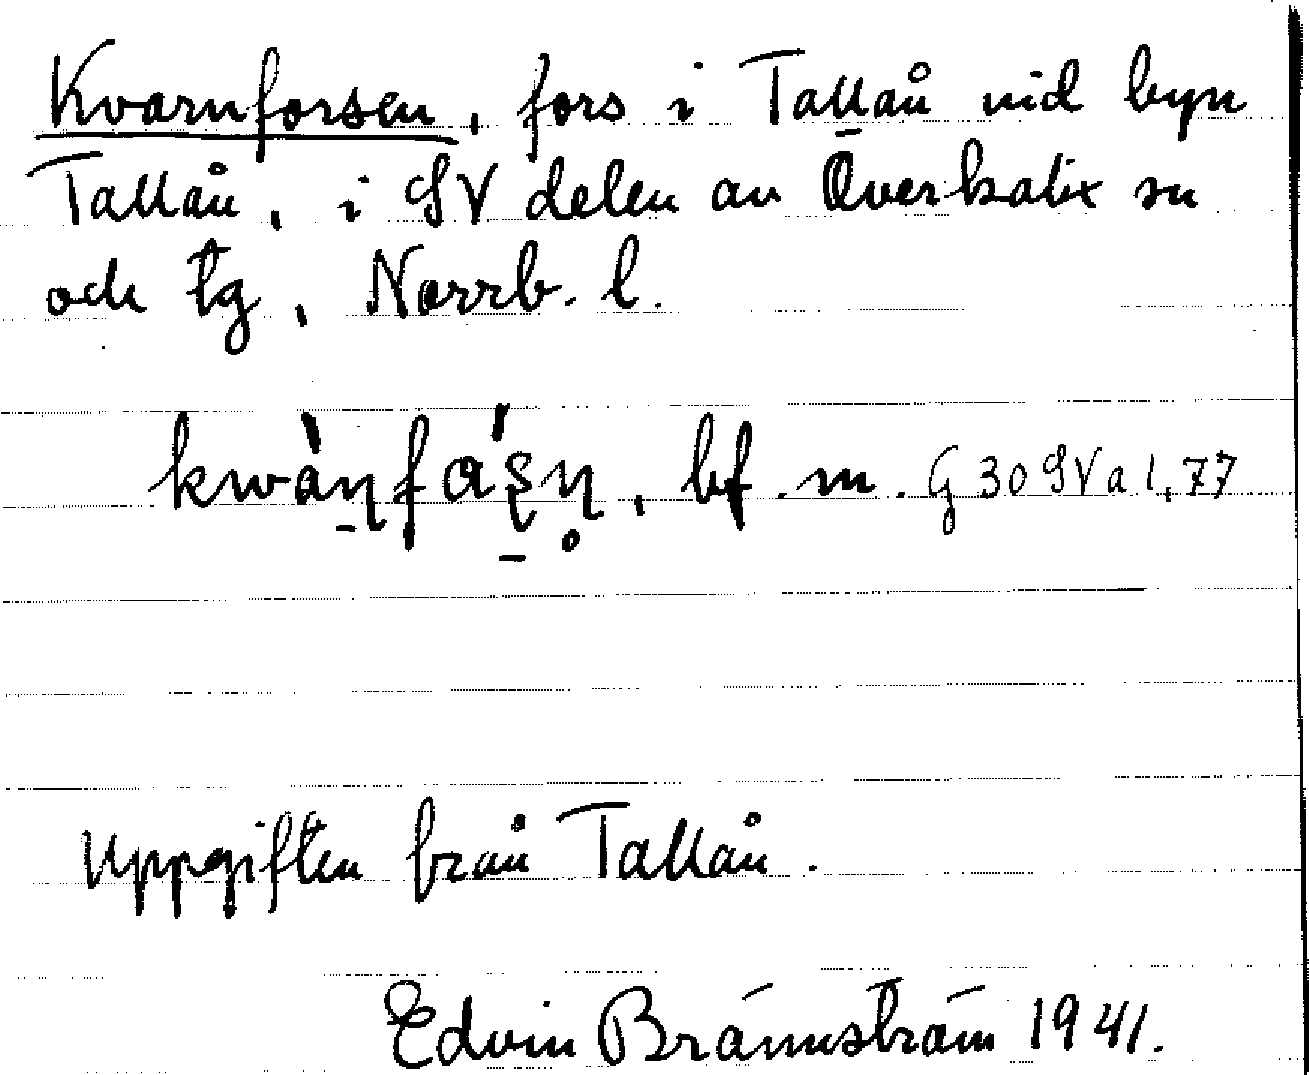 Kvarnforsen, fors i Tallån vid byn
Tallån, i SV delen av Överkalix sn
och tg, Norrb. l.
kwànfás̱n̥, bf. m. G 30 SV a 1,77
Uppgiften från Tallån.
Edvin Brännström 1941.